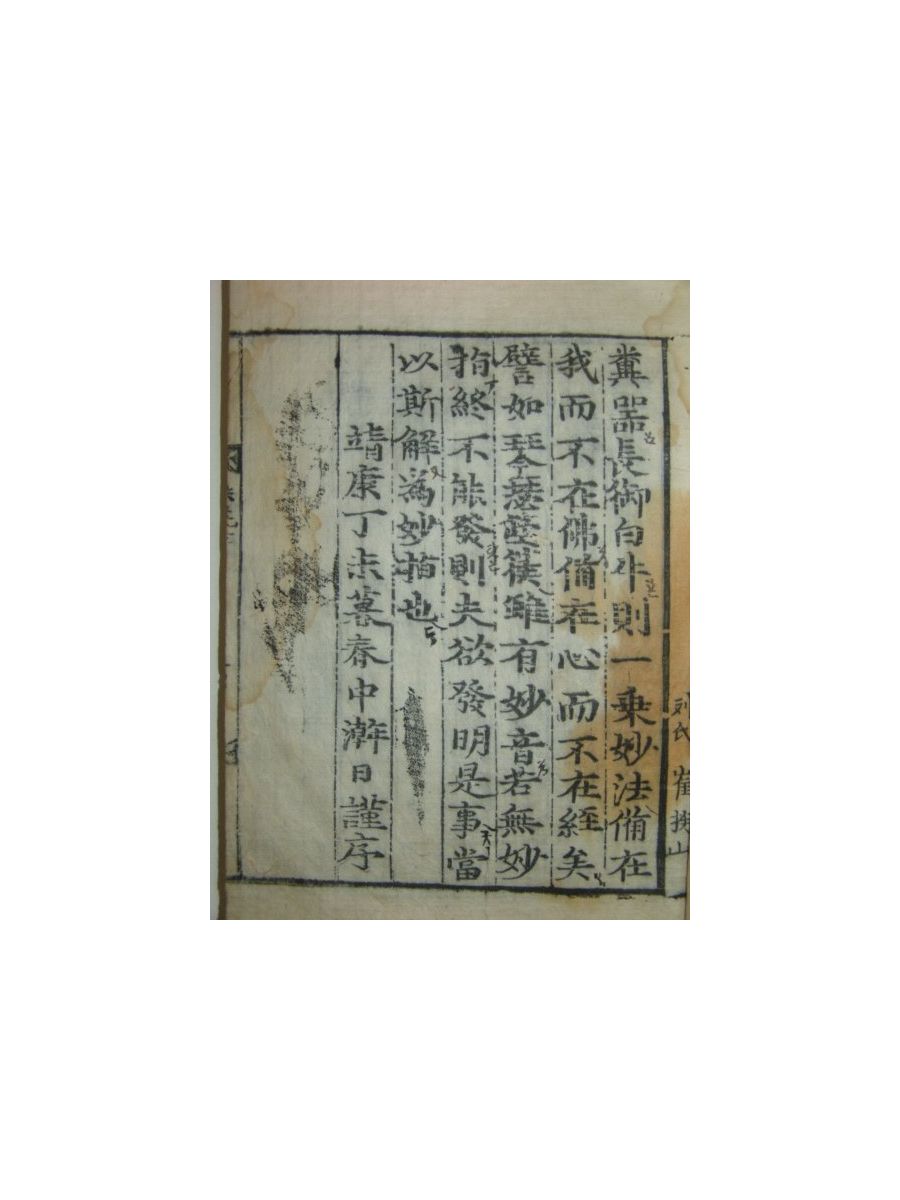 糞噐長御白牛則一乗妙法俻在
我而不在佛俻在心而不在経矣
譬如琴瑟箜篌雖有妙音若無妙
指終不能發則夫欲發明是事當
以斯解為妙指也
靖康丁未暮春中澣日謹序